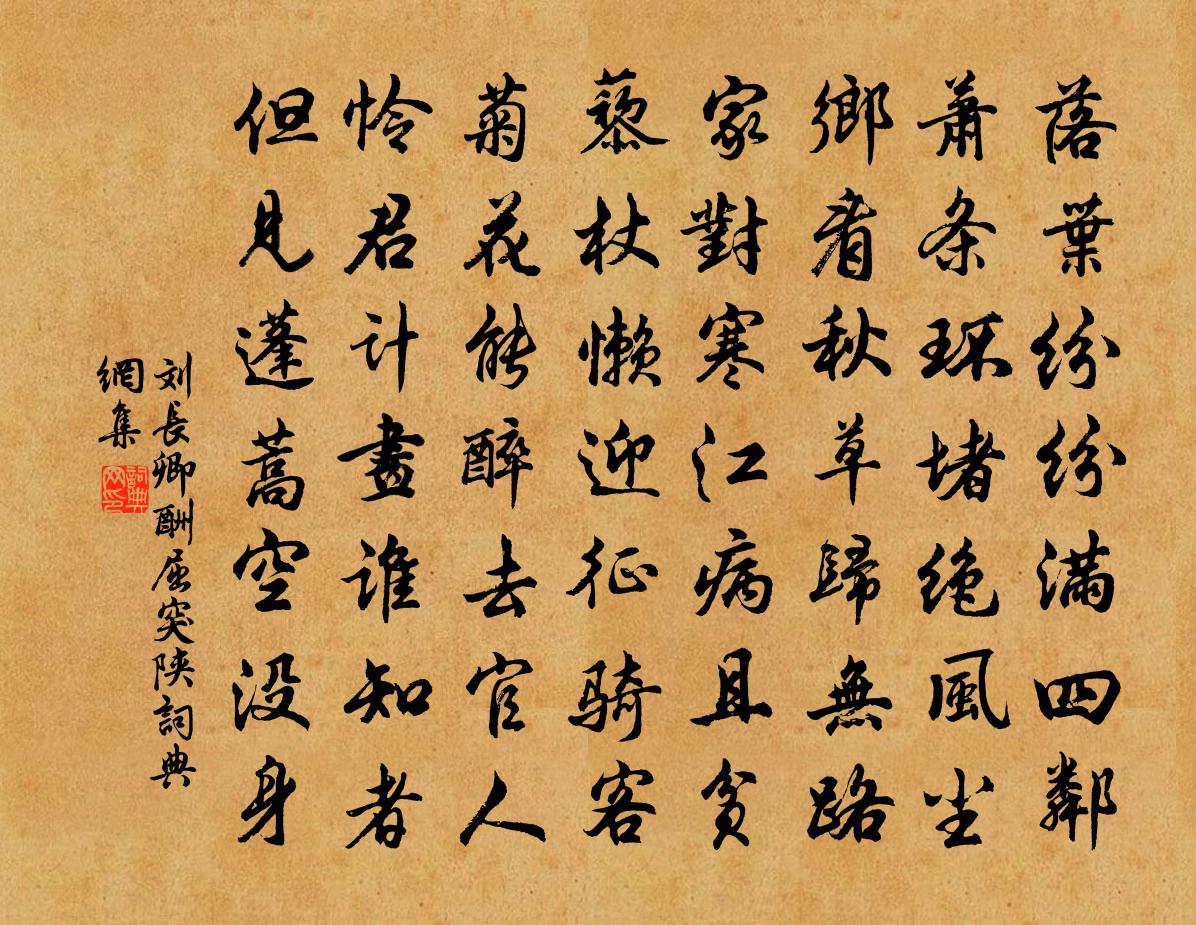 落葉紛紛滿四鄰
蕭条环堵絶風尘
鄉看秋草歸無路
家對寒江病且貧
藜杖懶迎征騎客
菊花能醉去官人
怜君计畫谁知者
但見蓬蒿空没身
刘長卿酬屈突陝詞典
網集
詞典
网印